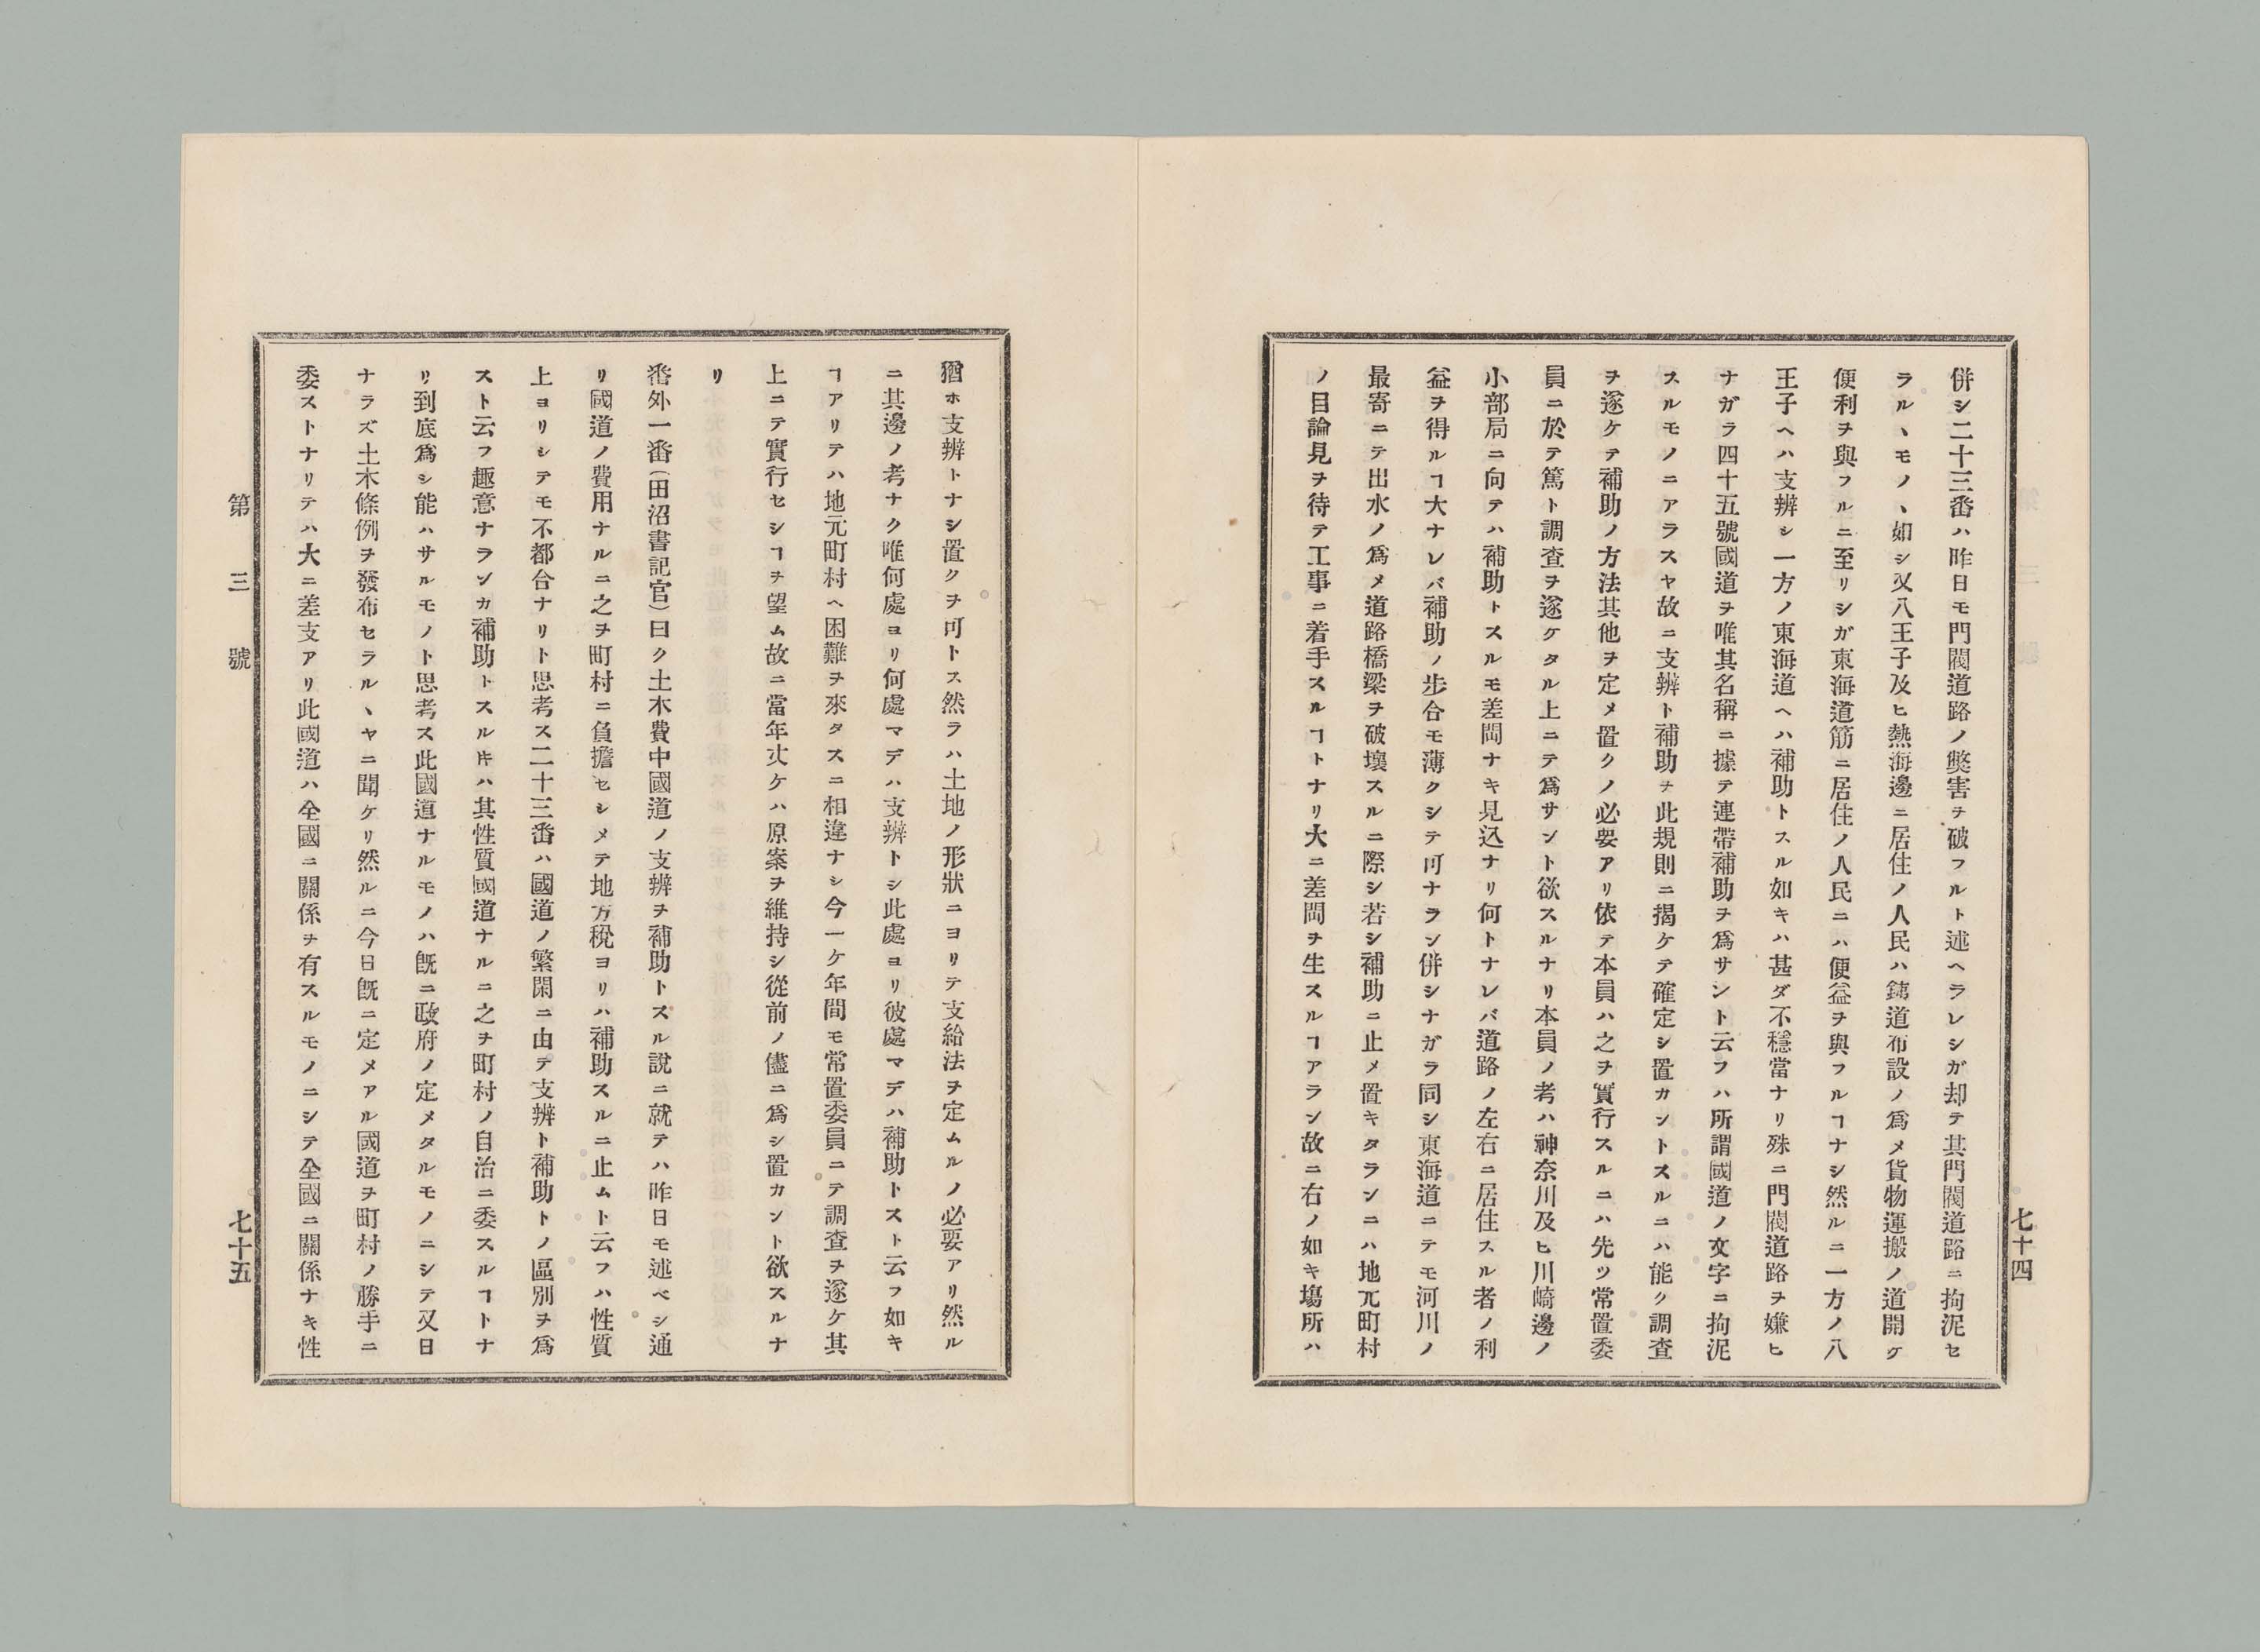 併シ二十三番ハ昨日モ門閥道路ノ弊害ヲ破フルト述ヘラレシガ却テ其門閥道路ニ拘泥セ
ラルヽモノヽ如シ又八王子及ヒ熱海邊ニ居住ノ人民ハ銕道布設ノ爲メ貨物運搬ノ道開ケ
便利ヲ與フルニ至リシガ東海道筋ニ居住ノ人民ニハ便益ヲ與フルヿナシ然ルニ一方ノ八
王子ヘハ支辨シ一方ノ東海道ヘハ補助トスル如キハ甚ダ不穩當ナリ殊ニ門閥道路ヲ嫌ヒ
ナガラ四十五號國道ヲ唯其名稱ニ據テ連帶補助ヲ爲サント云フハ所謂國道ノ文字ニ拘泥
スルモノニアラスヤ故ニ支辨ト補助ヲ此規則ニ揭ケテ確定シ置カントスルニハ能ク調査
ヲ遂ケテ補助ノ方法其他ヲ定メ置クノ必要アリ依テ本員ハ之ヲ實行スルニハ先ツ常置委
員ニ於テ篤ト調查ヲ遂ケタル上ニテ爲サント欲スルナリ本員ノ考ハ神奈川及ヒ川崎邊ノ
小部局ニ向テハ補助トスルモ差閊ナキ見込ナリ何トナレバ道路ノ左右ニ居住スル者ノ利
益ヲ得ルヿ大ナレバ補助ノ步合モ薄クシテ可ナラン併シナガラ同シ東海道ニテモ河川ノ
最寄ニテ出水ノ爲メ道路橋梁ヲ破壞スルニ際シ若シ補助ニ止メ置キタランニハ地兀町村
ノ目論見ヲ待テ工事ニ着手スルヿトナリ大ニ差閊ヲ生スルヿアラン故ニ右ノ如キ塲所ハ
七十四
猶ホ支辨トナシ置クヲ可トス然ラハ土地ノ形狀ニヨリテ支給法ヲ定ムルノ必要アリ然ル
ニ其邊ノ考ナク唯何處ヨリ何處マデハ支辨トシ此處ヨリ彼處マデハ補助トスト云フ如キ
ヿアリテハ地元町村ヘ困難ヲ來タスニ相違ナシ今一ケ年間モ常置委員ニテ調查ヲ遂ケ其
上ニテ實行セシヿヲ望ム故ニ當年丈ケハ原案ヲ維持シ從前ノ儘ニ爲シ置カント欲スルナ
リ
番外一番(田沼書記官)曰ク土木費中國道ノ支辨ヲ補助トスル說ニ就テハ昨日モ述ベシ通
リ國道ノ費用ナルニ之ヲ町村ニ負擔セシメテ地方稅ヨリハ補助スルニ止ムト云フハ性質
上ヨリシテモ不都合ナリト思考ス二十三番ハ國道ノ繁閑ニ由テ支辨ト補助トノ區別ヲ爲
スト云フ趣意ナランカ補助トスル𪜈ハ其性質國道ナルニ之ヲ町村ノ自治ニ委スルヿトナ
リ到底爲シ能ハサルモノト思考ス此國道ナルモノハ旣ニ政府ノ定メタルモノニシテ又日
ナラズ土木條例ヲ發布セラルヽヤニ聞ケリ然ルニ今日旣ニ定メアル國道ヲ町村ノ勝手ニ
委ストナリテハ大ニ差支アリ此國道ハ全國ニ關係ヲ有スルモノニシテ全國ニ關係ナキ性
第三號
七十五